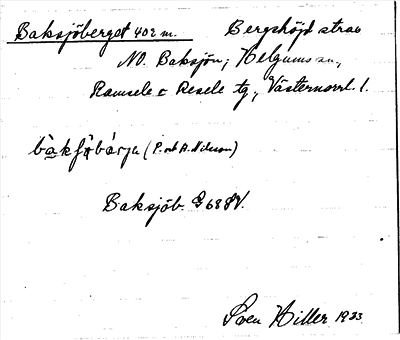 Baksjöberget 402 m. Bergshöjd strax
NO. Baksjön, Helgums sn,
Ramsele o Resele tg, Västernorrl. l.
(P. och A. Nilsson)
Baksjöb. G 68
Sven Hiller 1933